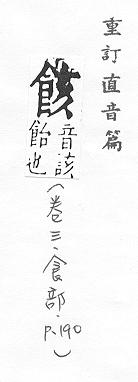 重訂直音篇
䬵
音該
飴也
(卷三·食部·p.190)